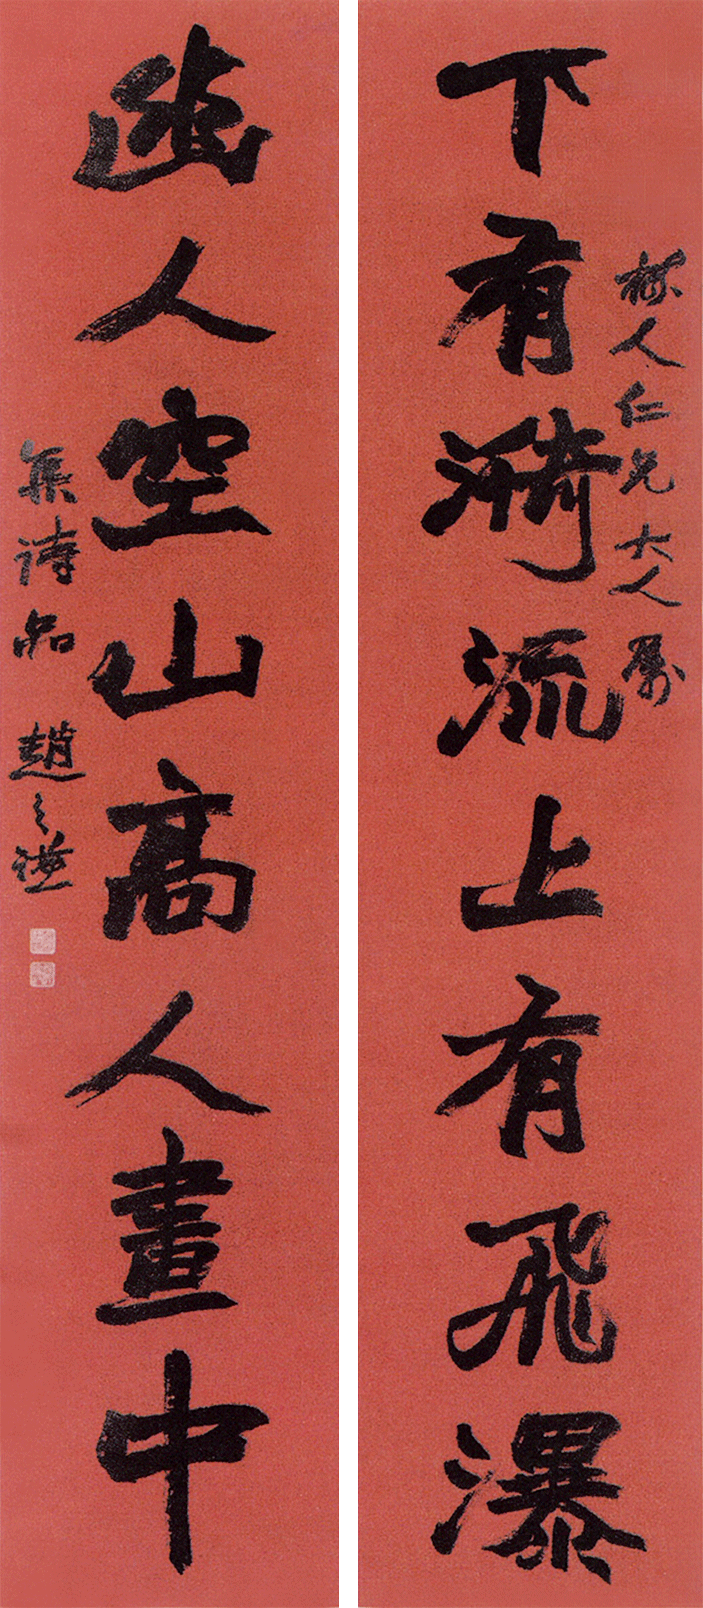 人仁兄大人属
下有漪流上有飛瀑
幽人空山高人畫中
集詩品 趙之謙